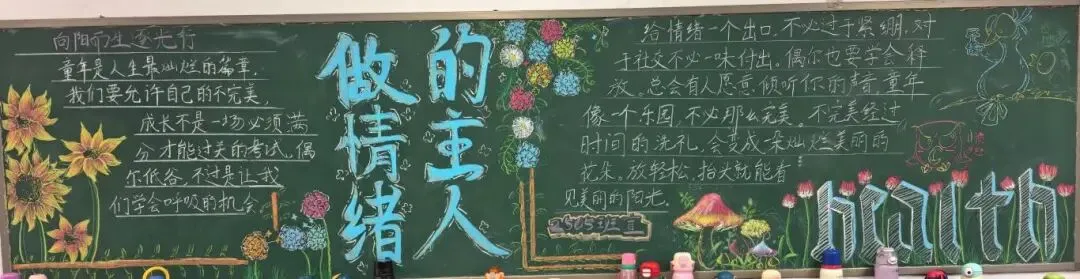 向阳而生逐光行
童年是人生最灿烂的篇章，
我们要允许自己的不完美，
成长不是一场必须满
分才能过关的考试。偶
尔低谷，不过是让我
们学会呼吸的机会
做情绪
的主人
给情绪一个出口，不必过于紧绷，对
于社交不必一味付出。偶尔也要学会释
放。总会有人愿意倾听你的声音，童年
像一个乐园，不必那么完美。不完美经过
时间的洗礼，会变成一朵灿烂美丽的
花朵。放轻松，抬头就能看
见美丽的阳光。
health